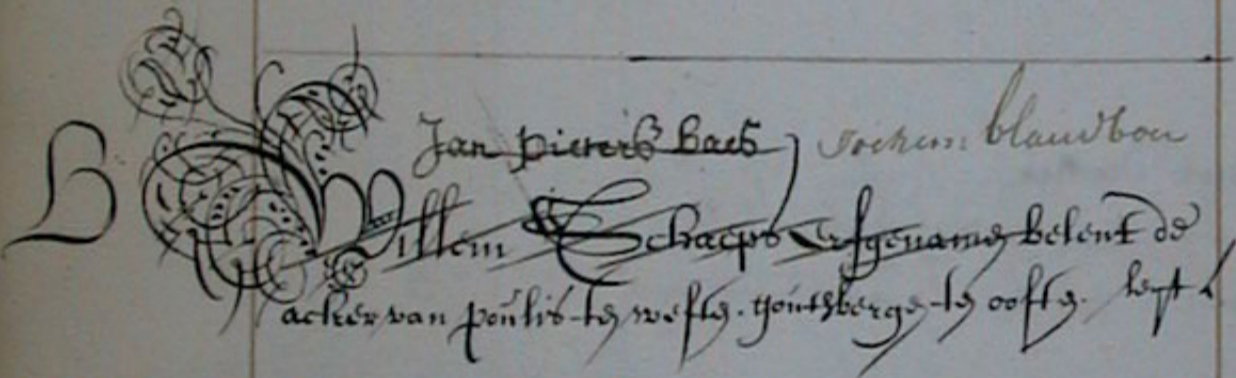 B Jan Pieters baes Jochem blauwboer
Willem Schaeps erfgenamen belent de
acker van poulis ten westen. houtberge ten oosten. leyt